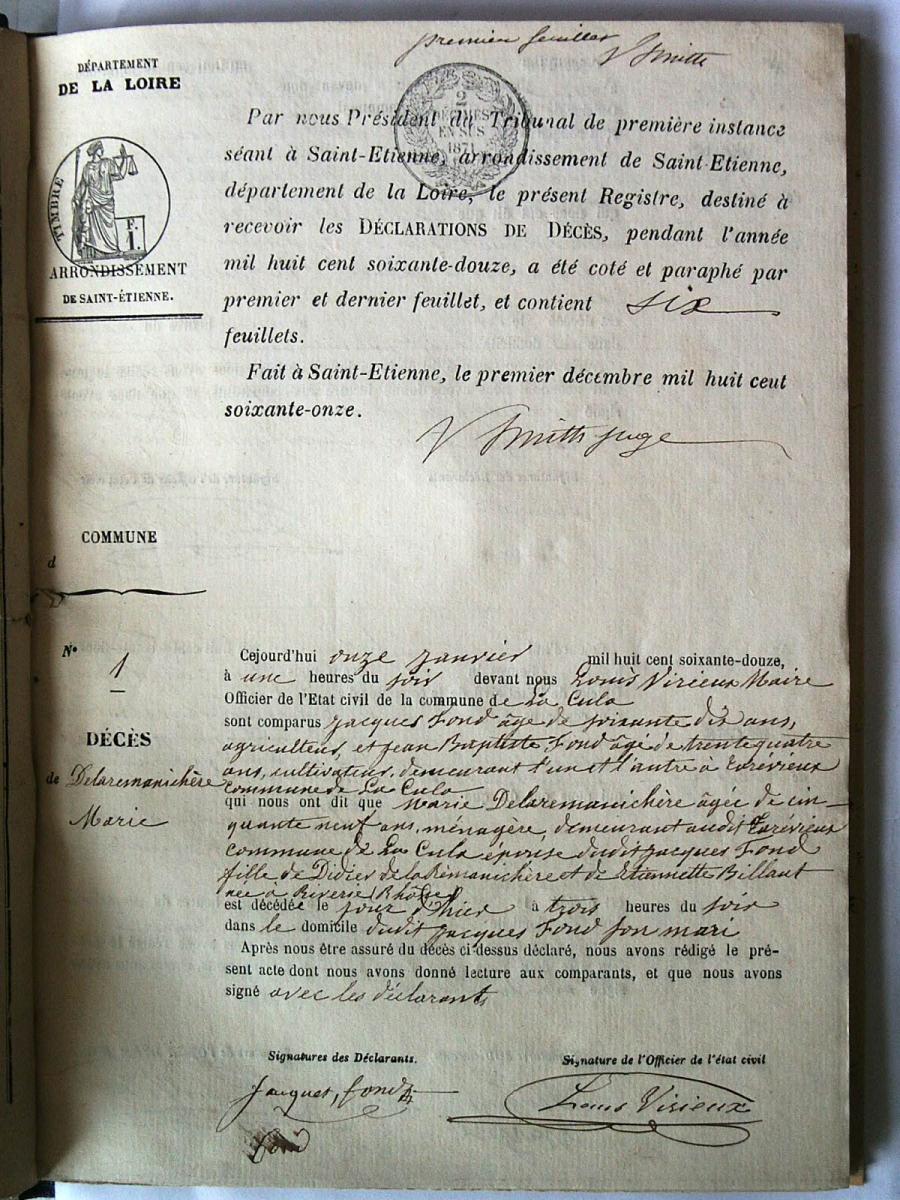 premier feuillet
V Smith
DÉPARTEMENT
DE LA LOIRE
TIMBRE
F.
1.
ARRONDISSEMENT
DE SAINT-ÉTIENNE.
2
DÉCIMES
EN SUS
1871
Par nous Président du Tribunal de première instance
séant à Saint-Etienne, arrondissement de Saint-Etienne,
département de la Loire, le présent Registre, destiné à
recevoir les DÉCLARATIONS DE DÉCÈS, pendant l'année
mil huit cent soixante-douze, a été coté et paraphé par
premier et dernier feuillet, et contient six
feuillets.
Fait à Saint-Etienne, le premier décembre mil huit ceut
soixante-onze.
V Smith juge
COMMUNE
d
N°
1
DÉCÈS
de Delaremanichère
Marie
Cejourd'hui onze janvier mil huit cent soixante-douze,
à une heures du soir devant nous Louis Virieux Maire
Officier de l'Etat civil de la commune de La Cula
sont comparus Jacques Fond âgé de soixante dix ans,
agriculteur, et Jean Baptiste Fond âgé de trente quatre
ans, cultivateur, demeurant l'un et l'autre à
commune de La Cula
qui nous ont dit que Marie Delaremanichère âgée de cin-
quante neuf ans, ménagère, demeurant audit
commune de La Cula épouse dudit Jacques Fond
fille de Didier de la Rémanichère et de Etiennette Billaut
née à Riverie (Rhône)
est décédée le jour d'hier à trois heures du soir
dans le domicile dudit Jacques Fond son mari
Après nous être assuré du décès ci-dessus déclaré, nous avons rédigé le pré-
sent acte dont nous avons donné lecture aux comparants, et que nous avons
signé avec les déclarants
Signatures des Déclarants.
Signature de l'Officier de l'état civil
Jacquet, fond
Louis Virieux
fond